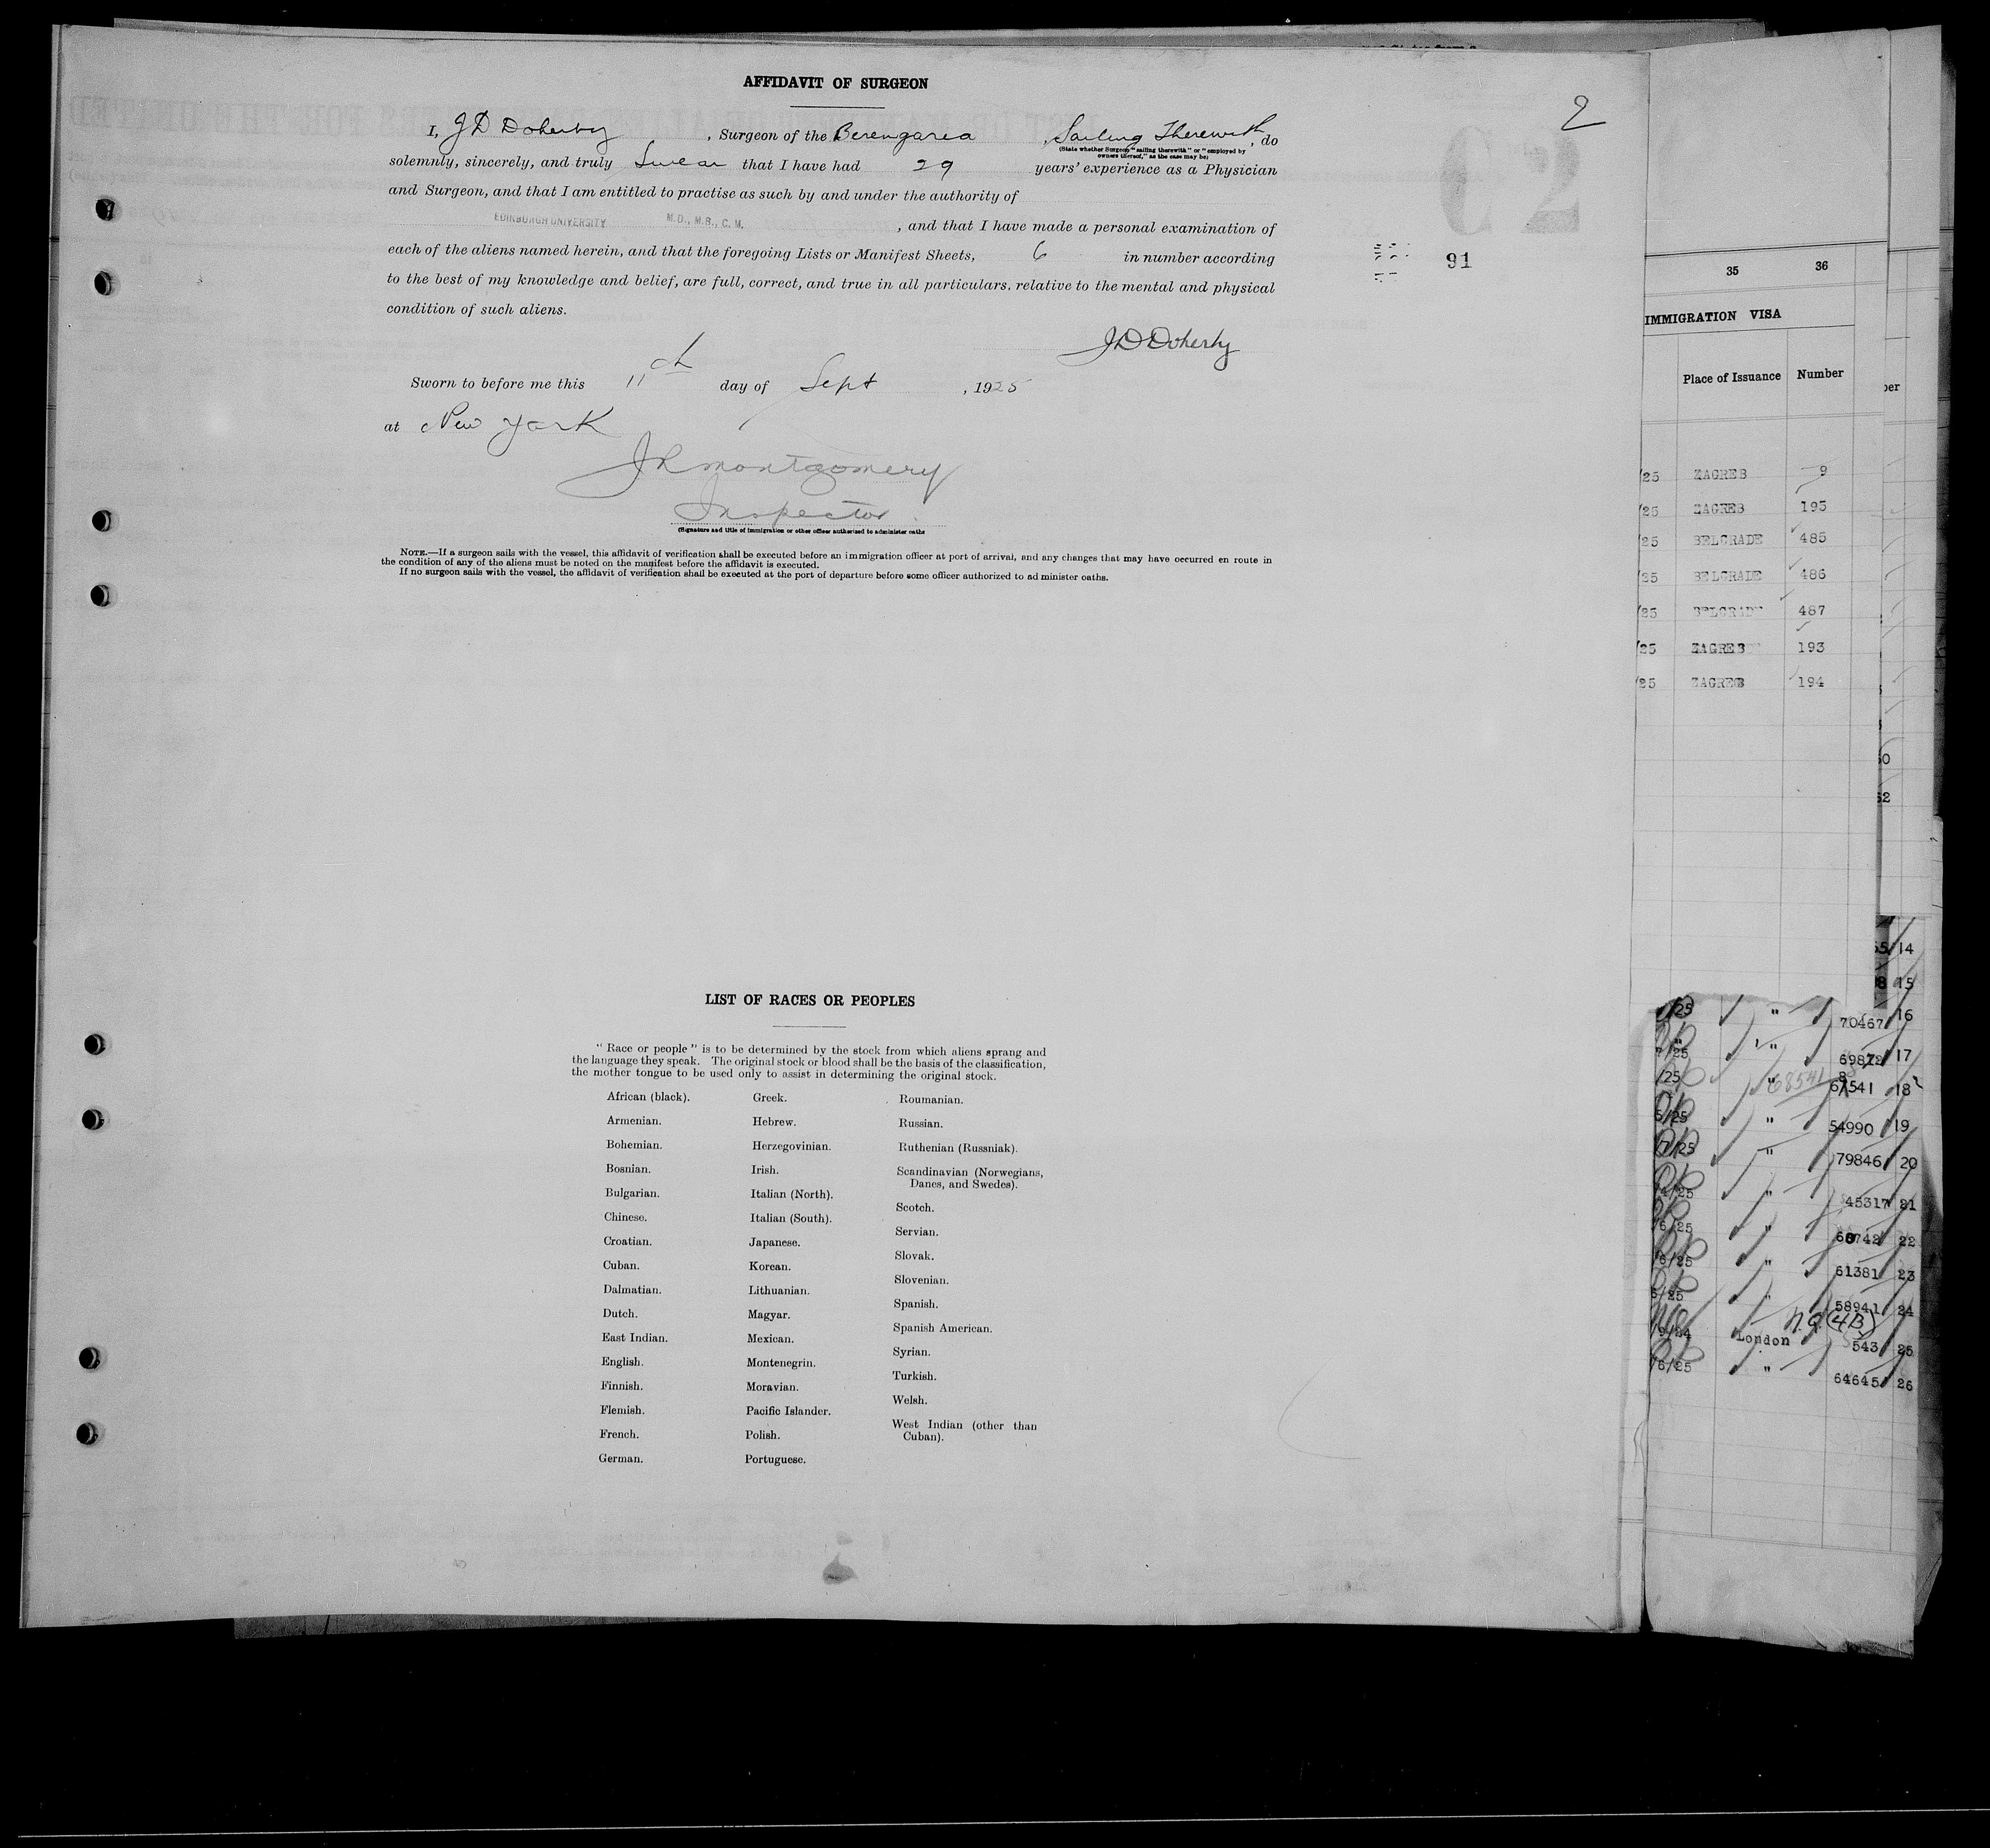 AFFIDAVIT OF SURGEON
2
I, J D Doherty, Surgeon of the Berengaria, Sailing Therewith, do
(State whether Surgeon "sailing therewith" or "employed by
owners thereof," as the case may be)
solemnly, sincerely, and truly Swear that I have had 29 years' experience as a Physician
and Surgeon, and that I am entitled to practise as such by and under the authority of
EDINBURGH UNIVERSITY M.D., M.B., C.M. , and that I have made a personal examination of
each of the aliens named herein, and that the foregoing Lists or Manifest Sheets, 6 in number according
91
to the best of my knowledge and belief, are full, correct, and true in all particulars, relative to the mental and physical
condition of such aliens.
J D Doherty
Sworn to before me this 11th day of Sept , 1925
at New York
J R Montgomery
Inspector
(Signature and title of immigration or other officer authorized to administer oaths
NOTE.—If a surgeon sails with the vessel, this affidavit of verification shall be executed before an immigration officer at port of arrival, and any changes that may have occurred en route in
the condition of any of the aliens must be noted on the manifest before the affidavit is executed.
If no surgeon sails with the vessel, the affidavit of verification shall be executed at the port of departure before some officer authorized to administer oaths.
LIST OF RACES OR PEOPLES
"Race or people" is to be determined by the stock from which aliens sprang and
the language they speak. The original stock or blood shall be the basis of the classification,
the mother tongue to be used only to assist in determining the original stock.
African (black).
Armenian.
Bohemian.
Bosnian.
Bulgarian.
Chinese.
Croatian.
Cuban.
Dalmatian.
Dutch.
East Indian.
English.
Finnish.
Flemish.
French.
German.
Greek.
Hebrew.
Herzegovinian.
Irish.
Italian (North).
Italian (South).
Japanese.
Korean.
Lithuanian.
Magyar.
Mexican.
Montenegrin.
Moravian.
Pacific Islander.
Polish.
Portuguese.
Roumanian.
Russian.
Ruthenian (Russniak).
Scandinavian (Norwegians,
Danes, and Swedes).
Scotch.
Servian.
Slovak.
Slovenian.
Spanish.
Spanish American.
Syrian.
Turkish.
Welsh.
West Indian (other than
Cuban).
35 36
IMMIGRATION VISA
Place of Issuance Number
/25 ZAGREB 9
/25 ZAGREB 195
/25 BELGRADE 485
/25 BELGRADE 486
/25 BELGRADE 487
/25 ZAGREB 193
/25 ZAGREB 194
14
15
/25 " 70467 16
7/25 " 69872 17
/25 " 68541 67541 18
5/25 " 54990 19
7/25 " 79846 20
4/25 " 45317 21
6/25 " 60742 22
6/25 " 61381 23
5/25 " 58941 24
9/24 London 543 25
6/25 " 64645 26